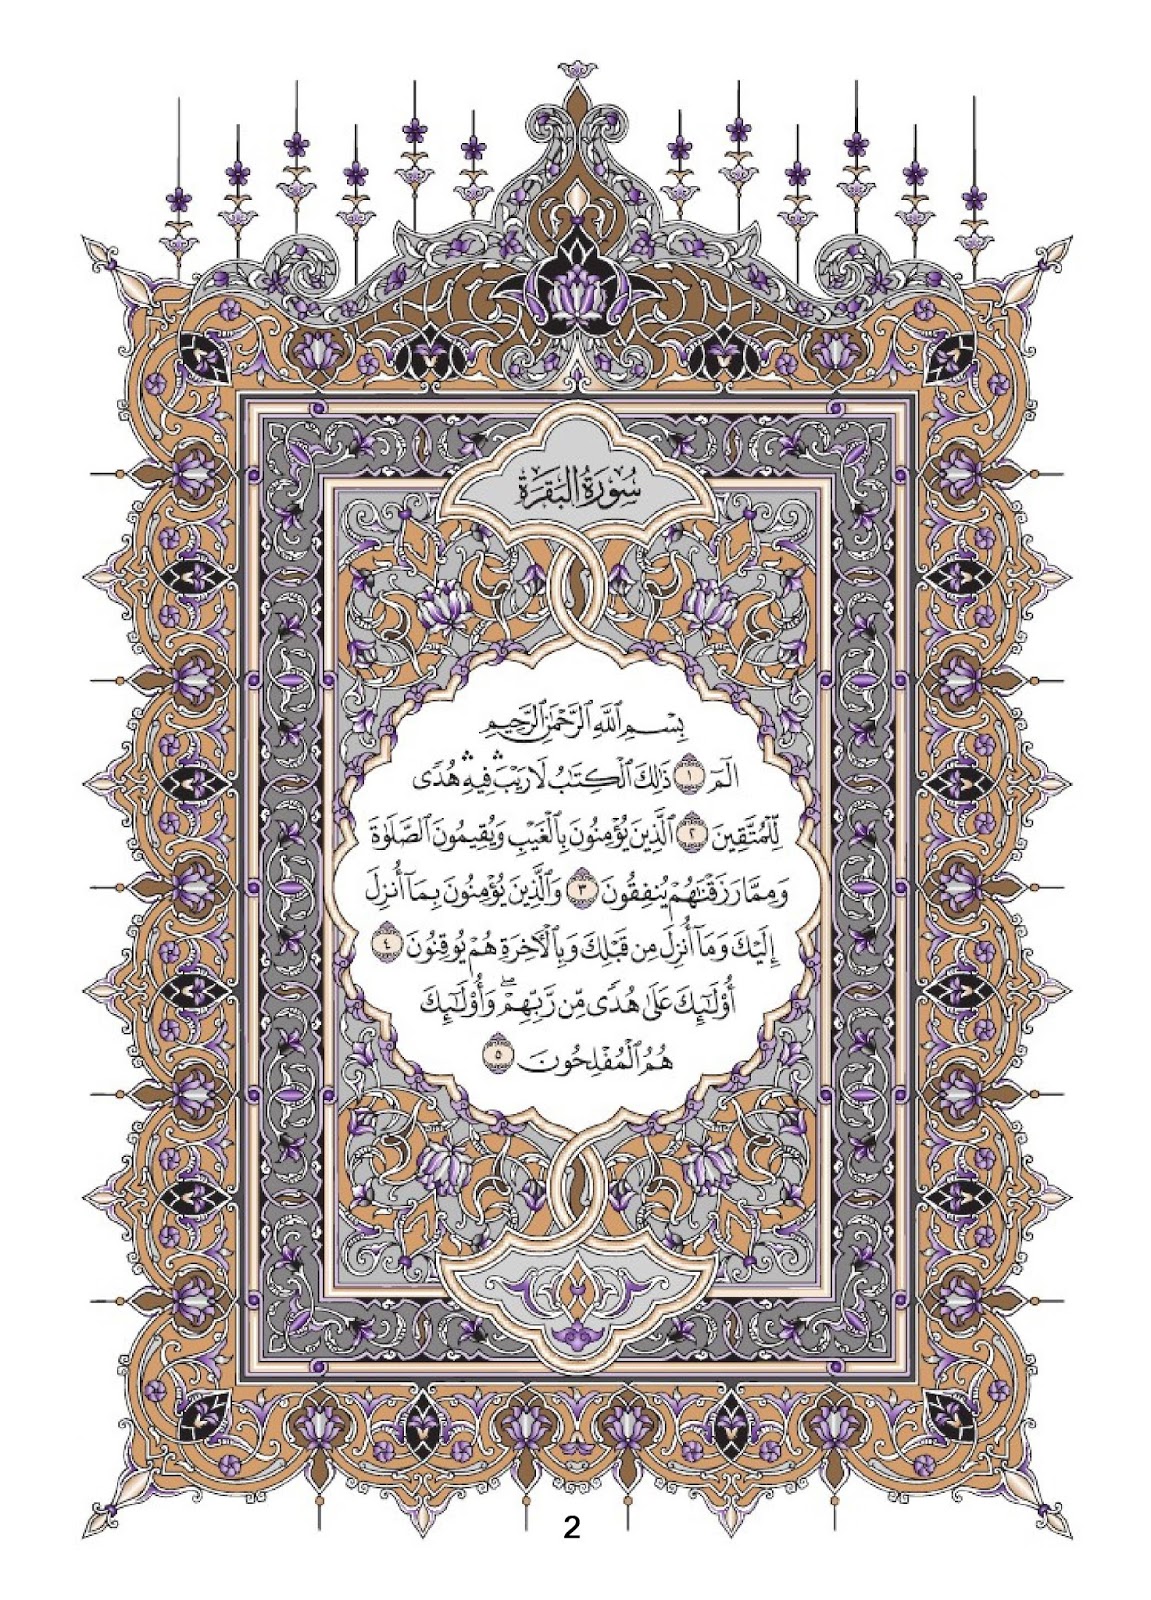 سُورَةُ البَقَرَةِ
بِسْمِ ٱللَّهِ ٱلرَّحْمَٰنِ ٱلرَّحِيمِ
الٓمٓ ١ ذَٰلِكَ ٱلْكِتَٰبُ لَا رَيْبَۛ فِيهِۛ هُدًى
لِّلْمُتَّقِينَ ٢ ٱلَّذِينَ يُؤْمِنُونَ بِٱلْغَيْبِ وَيُقِيمُونَ ٱلصَّلَوٰةَ
وَمِمَّا رَزَقْنَٰهُمْ يُنفِقُونَ ٣ وَٱلَّذِينَ يُؤْمِنُونَ بِمَآ أُنزِلَ
إِلَيْكَ وَمَآ أُنزِلَ مِن قَبْلِكَ وَبِٱلْأَخِرَةِ هُمْ يُوقِنُونَ ٤
أُو۟لَٰٓئِكَ عَلَىٰ هُدًى مِّن رَّبِّهِمْۖ وَأُو۟لَٰٓئِكَ
هُمُ ٱلْمُفْلِحُونَ ٥
2